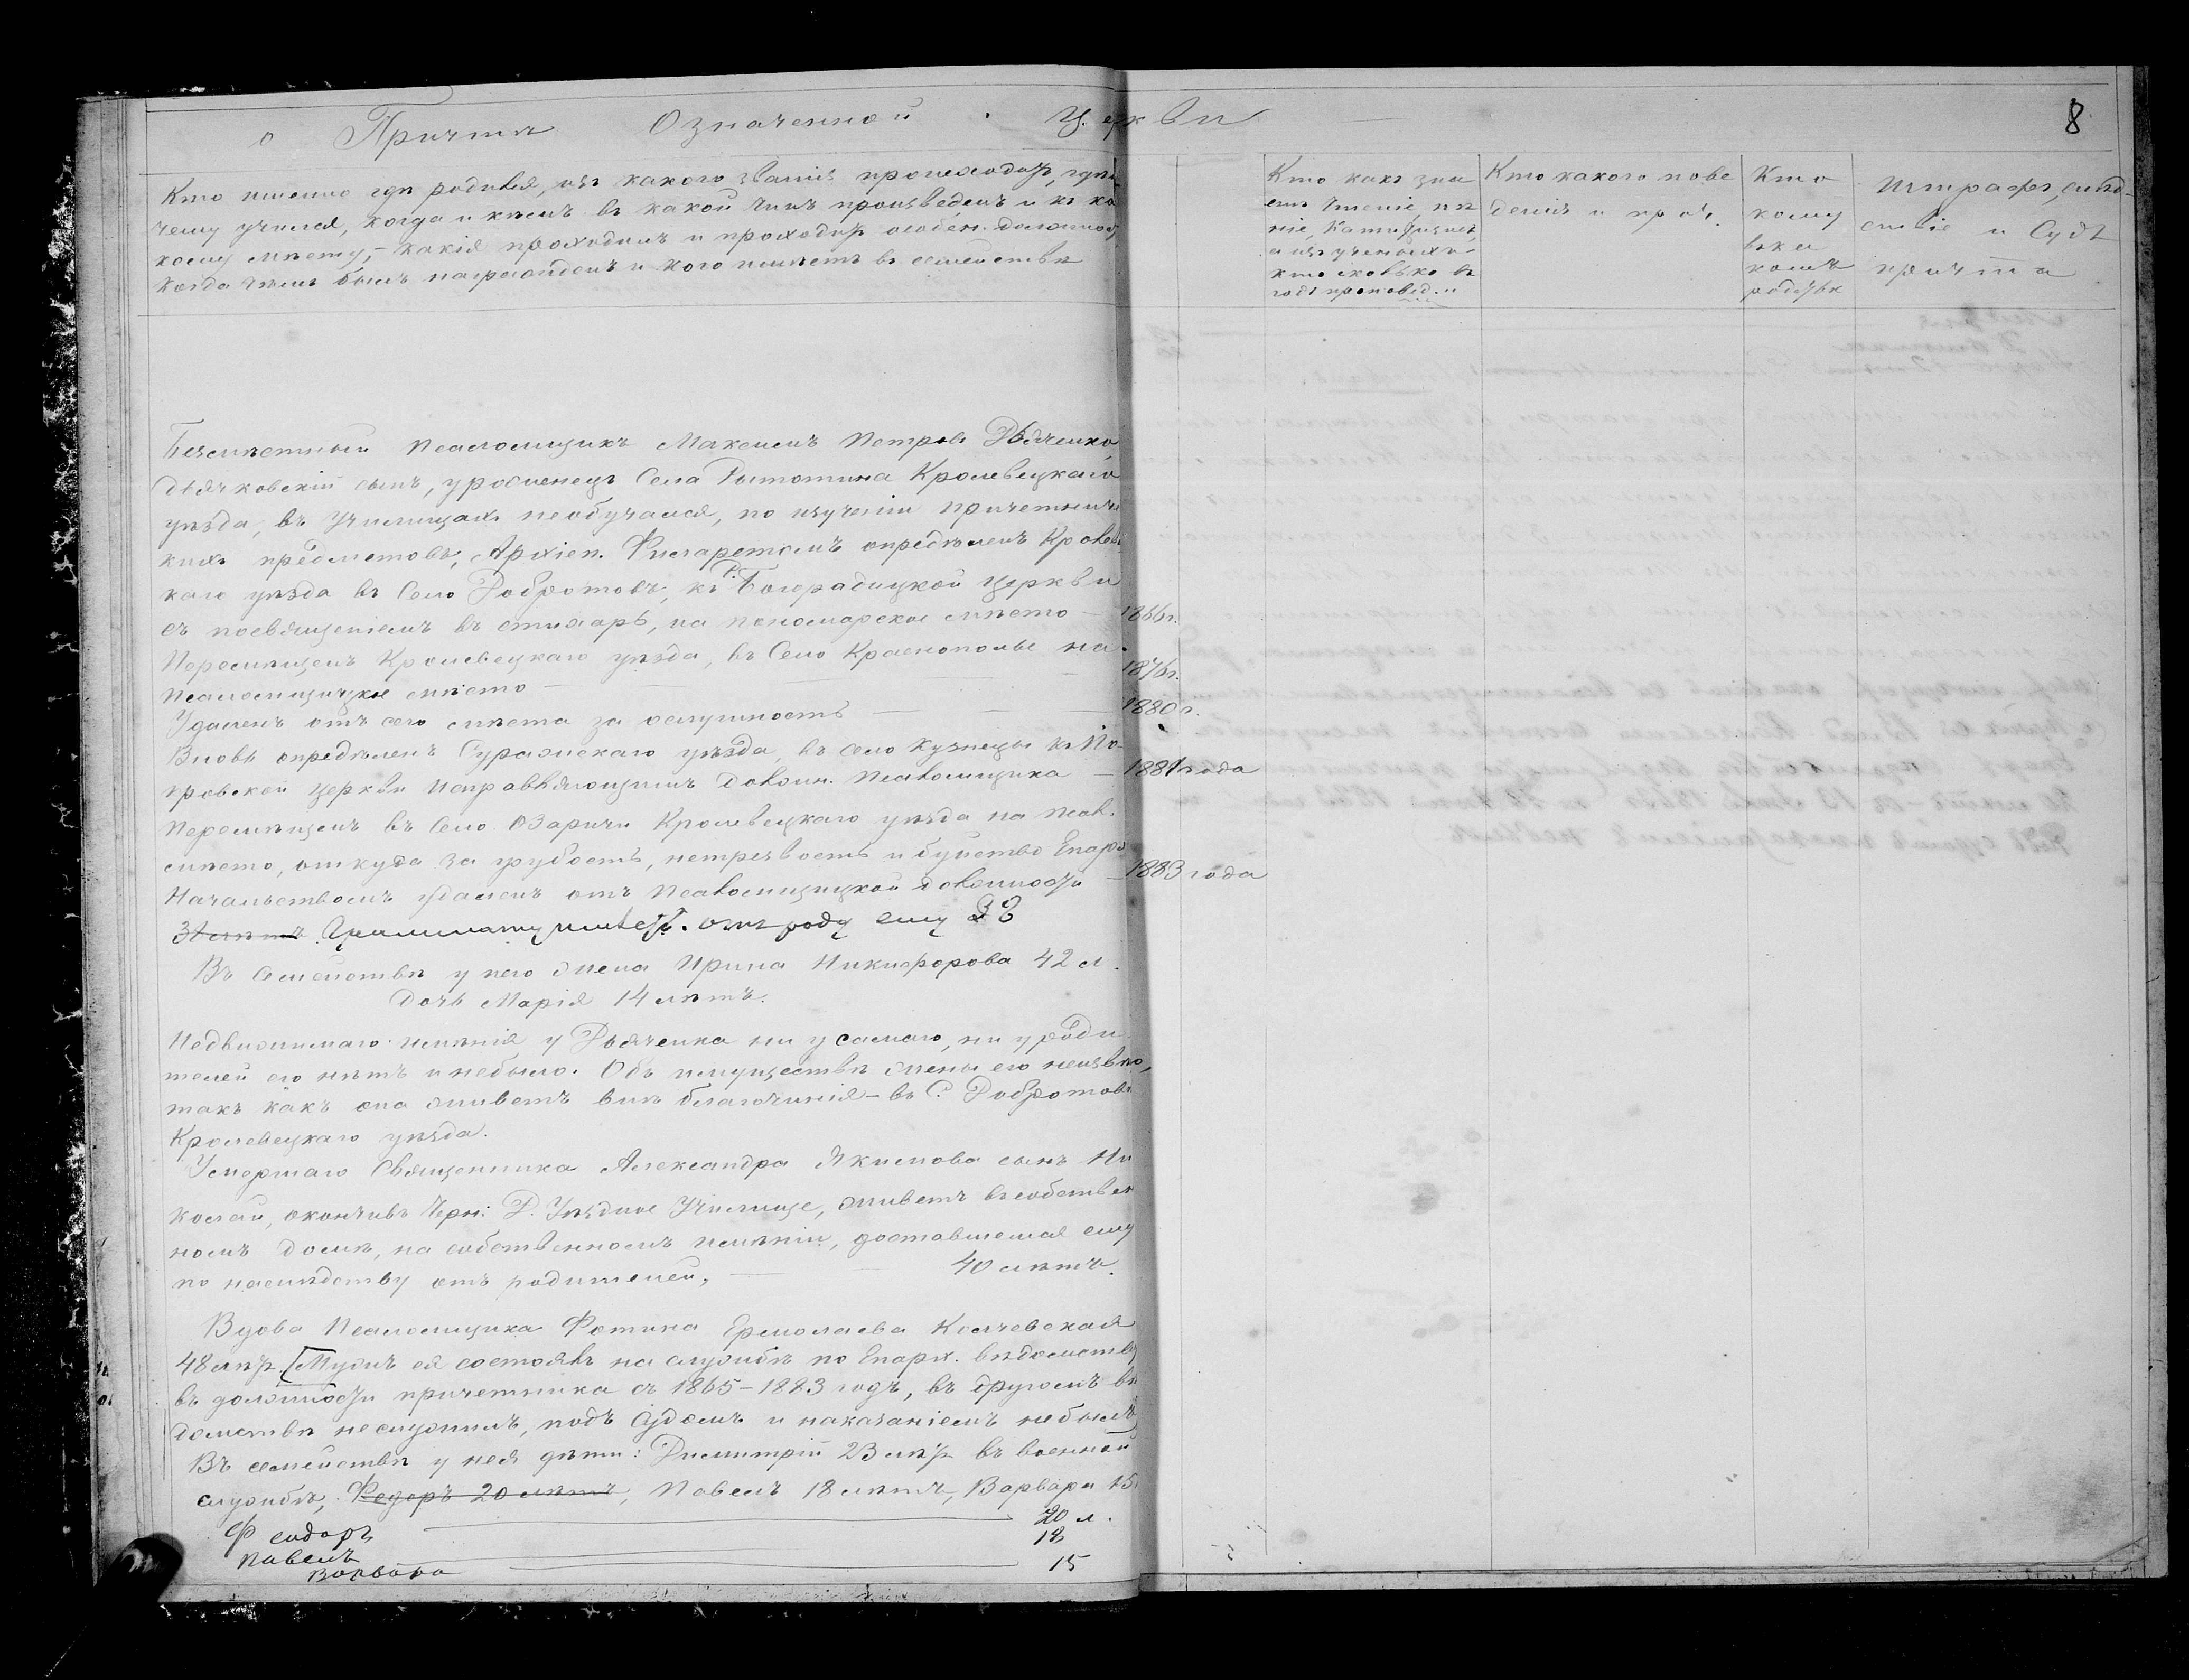 о Причтѣ Означенной Церкви
8
Кто именно гдѣ родився, изъ какого званія происходитъ, гдѣ и
чему учился, когда и кѣмъ въ какой чинъ произведенъ и къ ка
кому мѣсту, какія проходилъ и проходитъ особен. должност
когда чѣмъ былъ награжденъ и кого имѣетъ въ семействѣ
Кто какъ зна
етъ чтеніе, пѣ
ніе, Катихизисъ,
а изъ ученыхъ
кто сколько въ
годъ проповед.
Кто какого пове
денія и проч.
Кто
кому
въ ка
комъ
родствѣ
Штрафъ, слѣд-
ствіе и Судъ
причта
Безмѣстный Псаломщикъ Максимъ Петровъ Дьяченко,
дьячковскій сынъ, уроженецъ Села Рытотина Кролевецкаго
уѣзда, въ Училищахъ необучался, по изученіи причетниче
кихъ предметовъ, Архіеп. Филаретомъ опредѣленъ Кролев
каго уѣзда въ Село Добротовъ, къ Р. Богородицкой церкви
съ посвященіемъ въ стихарь, на пономарское мѣсто — 1866г.
Перемѣщенъ Кролевецкаго уѣзда, въ Село Краснополье на
Псаломщицкое мѣсто — 1876г.
Удаленъ отъ сего мѣста за ослушность — 1880г.
Вновь опредѣленъ Суражскаго уѣзда, въ село Кузнецы къ По-
кровской церкви исправляющимъ должн. Псаломщика — 1881 года
Перемѣщенъ въ Село Озаричи Кролевецкаго уѣзда на Псал.
мѣсто, откуда за грубость, нетрезвость и буйство Епарх
Начальствомъ удаленъ отъ Псаломщицкой должности — 1883 года
отъ роду ему
Въ Семействѣ у него жена Ирина Никифорова 42 л.
дочь Марія 14 лѣтъ.
Недвижимаго имѣнія у Дьяченка ни у самаго, ни у роди
телей его нѣтъ и небыло. Объ имуществѣ жены его неизвѣ
такъ какъ она живетъ внѣ благочинія – въ С. Добротовѣ
Кролевецкаго уѣзда.
Умершаго Священника Александра Якимова сынъ Ни
колай, окончивъ Черн. Д. Уѣздное Училище, живетъ въ собствен
номъ домѣ, на собственномъ имѣніи, доставшемся ему
по наслѣдству отъ родителей, — 40 лѣтъ.
Вдова Псаломщика Фотина Ермолаева Колчевская
48 лѣтъ [Мужъ ея состоялъ на службѣ по Епарх. вѣдомству
въ должности причетника съ 1865–1883 годъ, въ другомъ вѣ
домствѣ неслужилъ, подъ Судомъ и наказаніемъ небылъ
Въ семействѣ у нея дѣти: Димитрій 23 лѣтъ въ военной
службѣ, Федоръ 20 лѣтъ, Павелъ 18 лѣтъ, Варвара 15
Феодоръ — 20 л.
Павелъ — 18
Варвара — 15